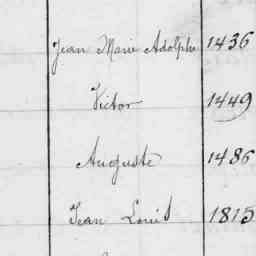 Jean Marie Adolphe 1436
Victor 1449
Auguste 1486
Jean Louis 1815